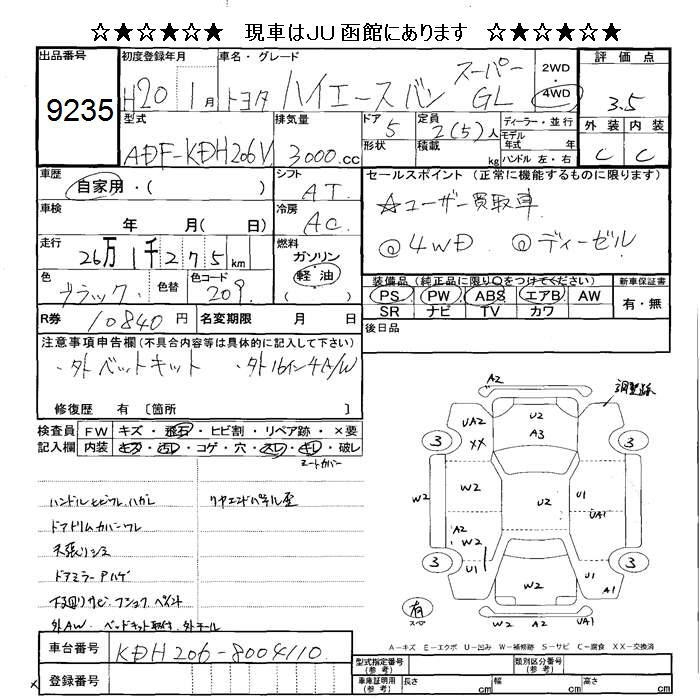 ☆★☆★☆★ 現車はJU函館にあります ☆★☆★☆★
出品番号 初度登録年月 車名・グレード 2WD 評価点
9235 H20 1月 トヨタ ハイエースバン スーパーGL 4WD 3.5
型式 排気量 ドア 定員 ディーラー・並行 外装 内装
ADF-KDH206V 3000.cc 5 2(5)人 モデル年式 年 C C
形状 積載 kg ハンドル 左・右
車歴 シフト セールスポイント(正常に機能するものに限ります)
自家用・( ) AT ☆ユーザー買取車
車検 冷房
年 月( 日) AC ◎4WD ◎ディーゼル
走行 燃料
26万1千275km ガソリン
軽油
色 色替 色コード 装備品(純正品に限り○をつけてください) 新車保証書
ブラック 209 PS PW ABS エアB AW 有・無
SR ナビ TV カワ
R券 10840円 名変期限 月 日 後日品
注意事項申告欄(不具合内容等は具体的に記入して下さい)
・外ベットキット ・外16イン4A/W
修復歴 有 〔箇所 〕
検査員 FW キズ・飛石・ヒビ割・リペア跡・×要
記入欄 内装 キズ・汚レ・コゲ・穴・スレ・キレ・破レ
シートカバー
ハンドルヒビワレ、ハガレ リヤエンドパネル歪
ドアトリムカバーワレ
天張りシミ
ドアミラーAハゲ
下回りサビ・フショク・ペイント
外AW、ベッドキット取付、外モール
車台番号 KDH206-8004110
登録番号
A2
調整跡
UA2 XX U2 A3
3 3
W2 W2 U2 U1 UA1
A2 W2
3 3
W2 U1 A1
U1
W2 UA1
有
スペア
A-キズ E-エクボ U-凹み W-補修跡 S-サビ C-腐食 XX-交換済
型式指定番号(参考) 類別区分番号(参考)
車庫証明用(参考) 長さ cm 幅 cm 高さ cm